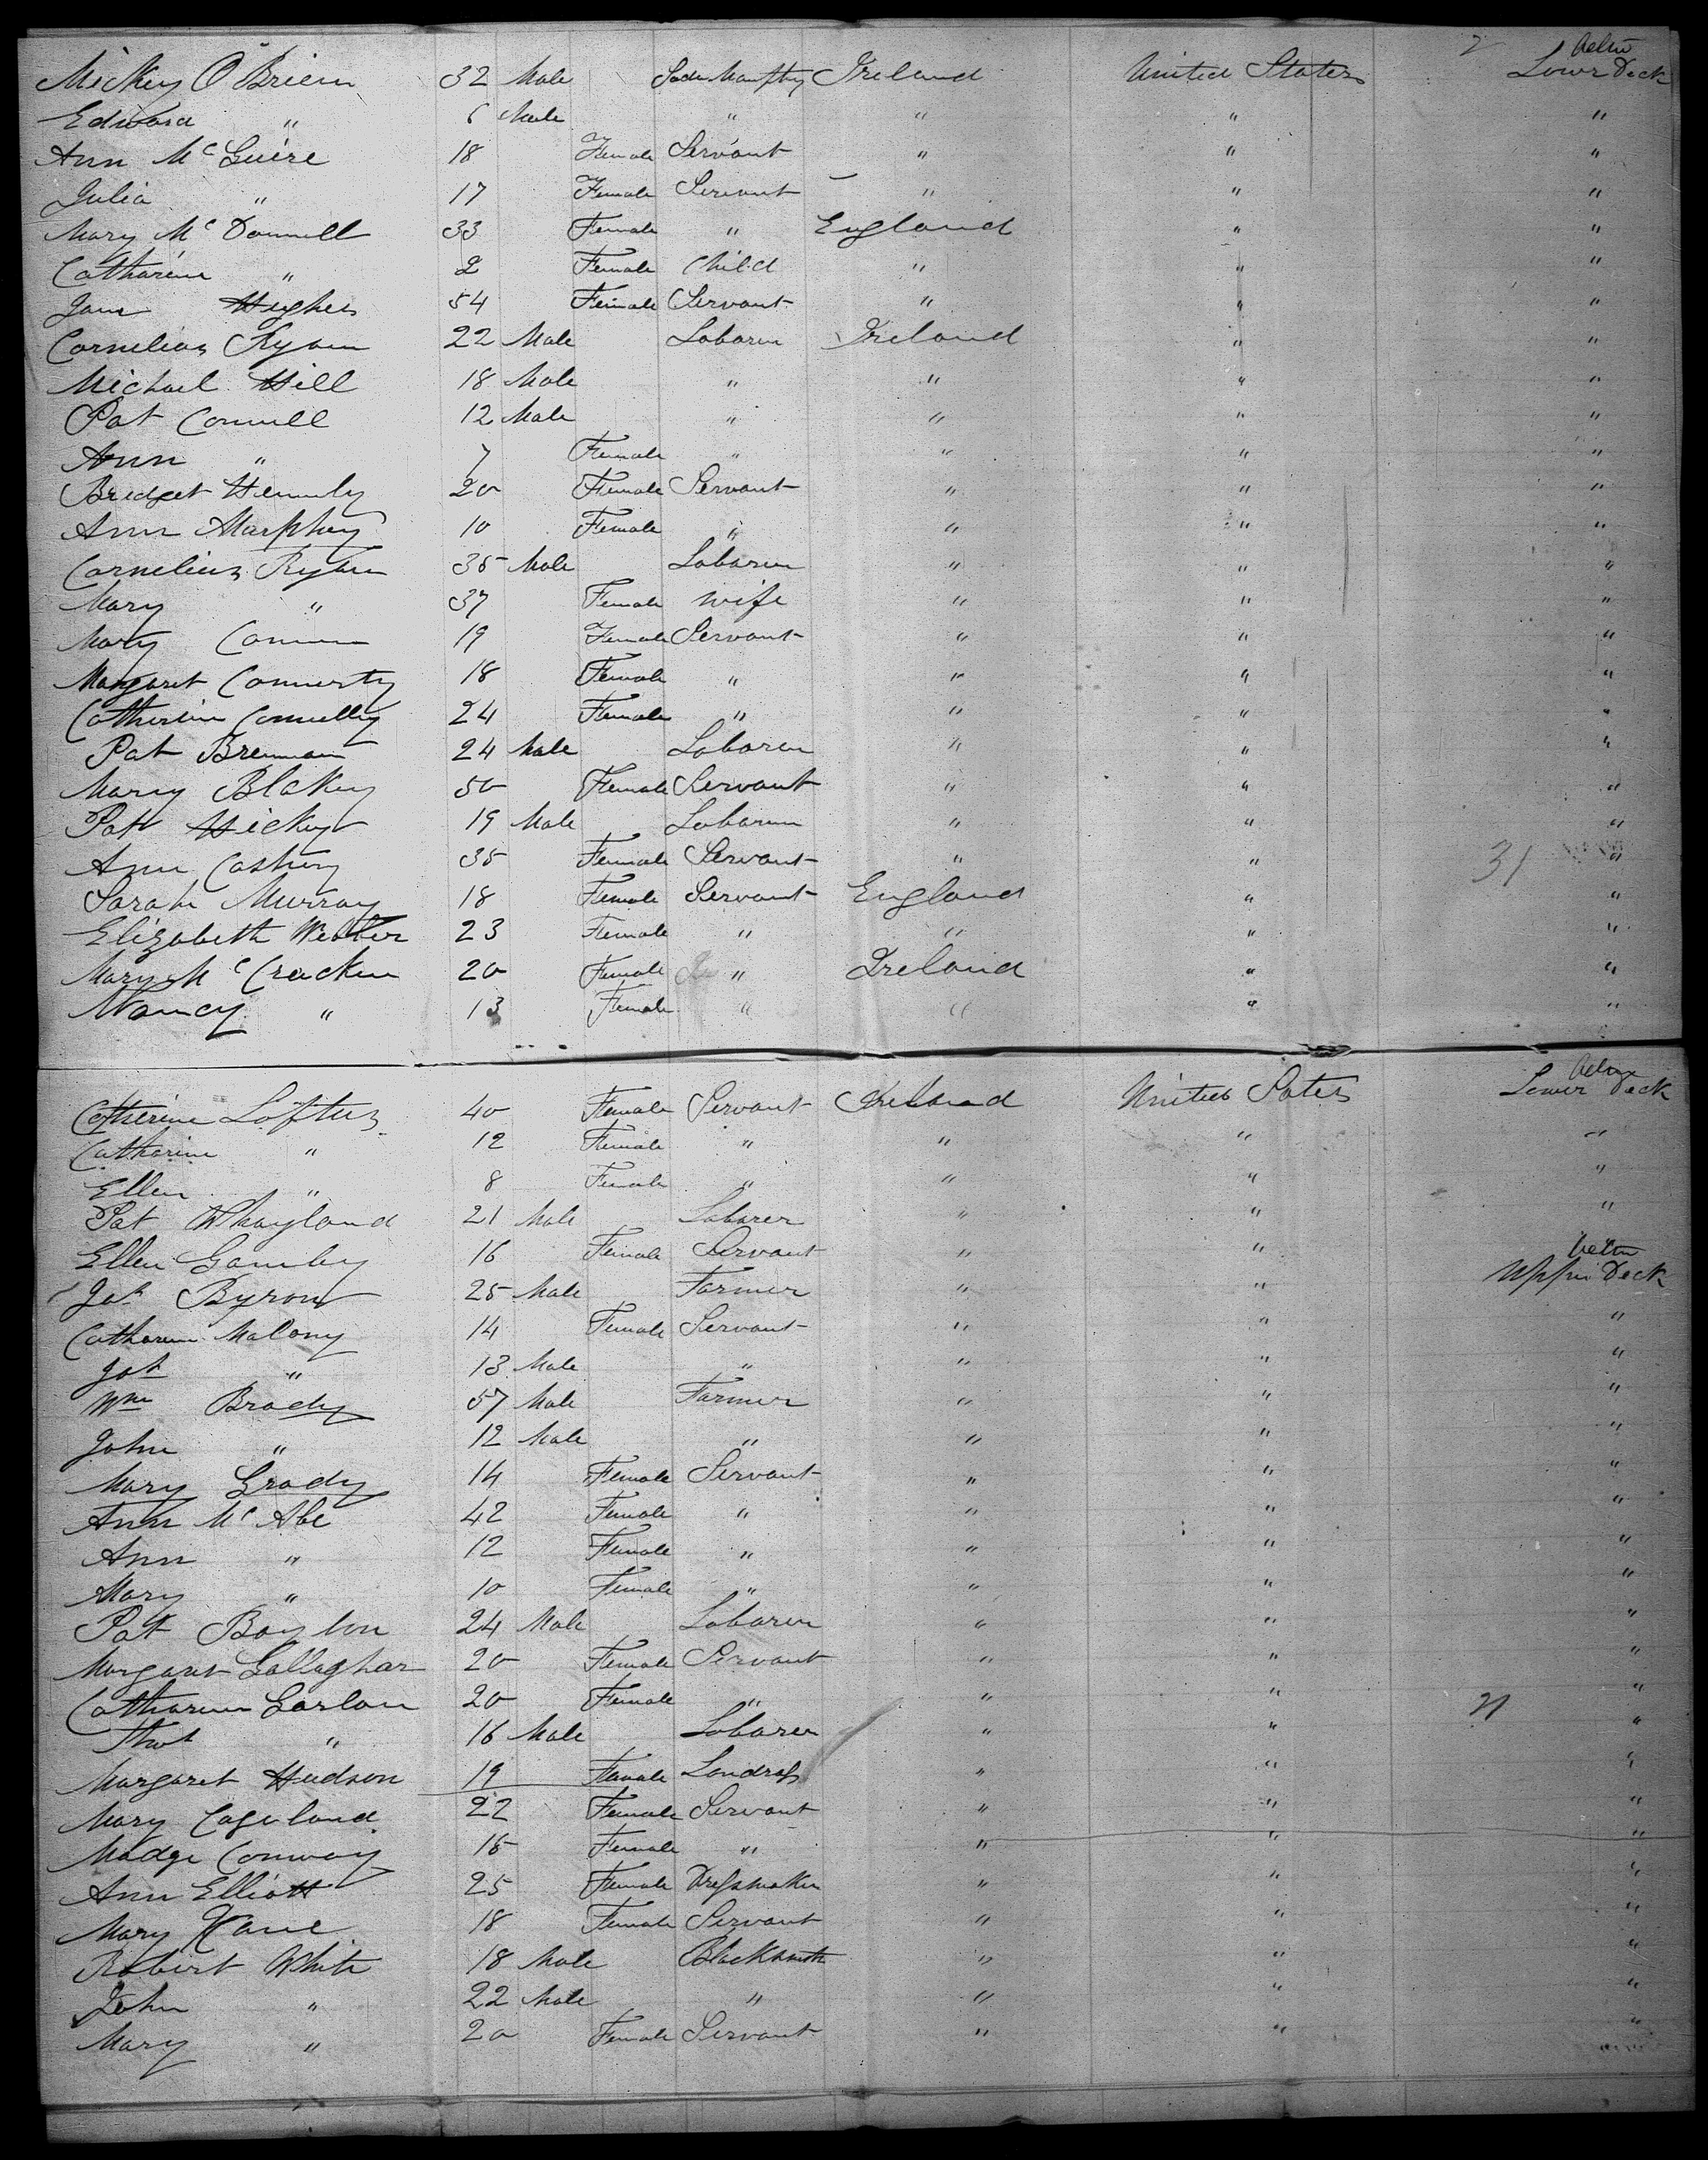 2 Aeltn
Mickey O'Brien 32 Male Soda Manftry Ireland United States Lower Deck
Edward " 6 Male " " " "
Ann McGuire 18 Female Servant " " "
Julia " 17 Female Servant " " "
Mary McDonnell 33 Female " England " "
Catharine " 2 Female Child " " "
Jane Hughes 54 Female Servant " " "
Cornelius Ryan 22 Male Laborer Ireland " "
Michael Hill 18 Male " " " "
Pat Connell 12 Male " " " "
Ann " 7 Female " " " "
Bridget 20 Female Servant " " "
Ann Murphey 10 Female " " " "
Cornelius Ryan 35 Male Laborer " " "
Mary " 37 Female Wife " " "
Mary 19 Female Servant " " "
Margaret 18 Female " " " "
Catherine Connelly 24 Female " " " "
Pat Brennan 24 Male Laborer " " "
Mary Blakey 50 Female Servant " " "
Pat Hickey 19 Male Laborer " " "
Ann 35 Female Servant " " 31 "
Sarah Murray 18 Female Servant England " "
Elizabeth Webber 23 Female " " " "
Mary McCracken 20 Female " Ireland " "
Nancy " 13 Female " " " "
Aeltn
Catherine Loftus 40 Female Servant Ireland United States Lower Deck
Catharine " 12 Female " " " "
Ellen " 8 Female " " " "
Pat Whayland 21 Male Laborer " " "
Ellen 16 Female Servant " " Aeltn
Jas Byron 25 Male Farmer " " Upper Deck
Catharine Malony 14 Female Servant " " "
Jas " 13 Male " " " "
Wm Brady 57 Male Farmer " " "
John " 12 Male " " " "
Mary Grady 14 Female Servant " " "
Ann McAbe 42 Female " " " "
Ann " 12 Female " " " "
Mary " 10 Female " " " "
Pat Boylon 24 Male Laborer " " "
Margaret Gallaghar 20 Female Servant " " "
Catharine Garlan 20 Female " " " "
Thos " 16 Male Laborer " " 21 "
Margaret Hudson 19 Female Landrass " " "
Mary 22 Female Servant " " "
Madge Conway 15 Female " " " "
Ann Elliott 25 Female Dressmaker " " "
Mary Kane 18 Female Servant " " "
Robert White 18 Male Blacksmith " " "
John " 22 Male " " " "
Mary " 20 Female Servant " " "